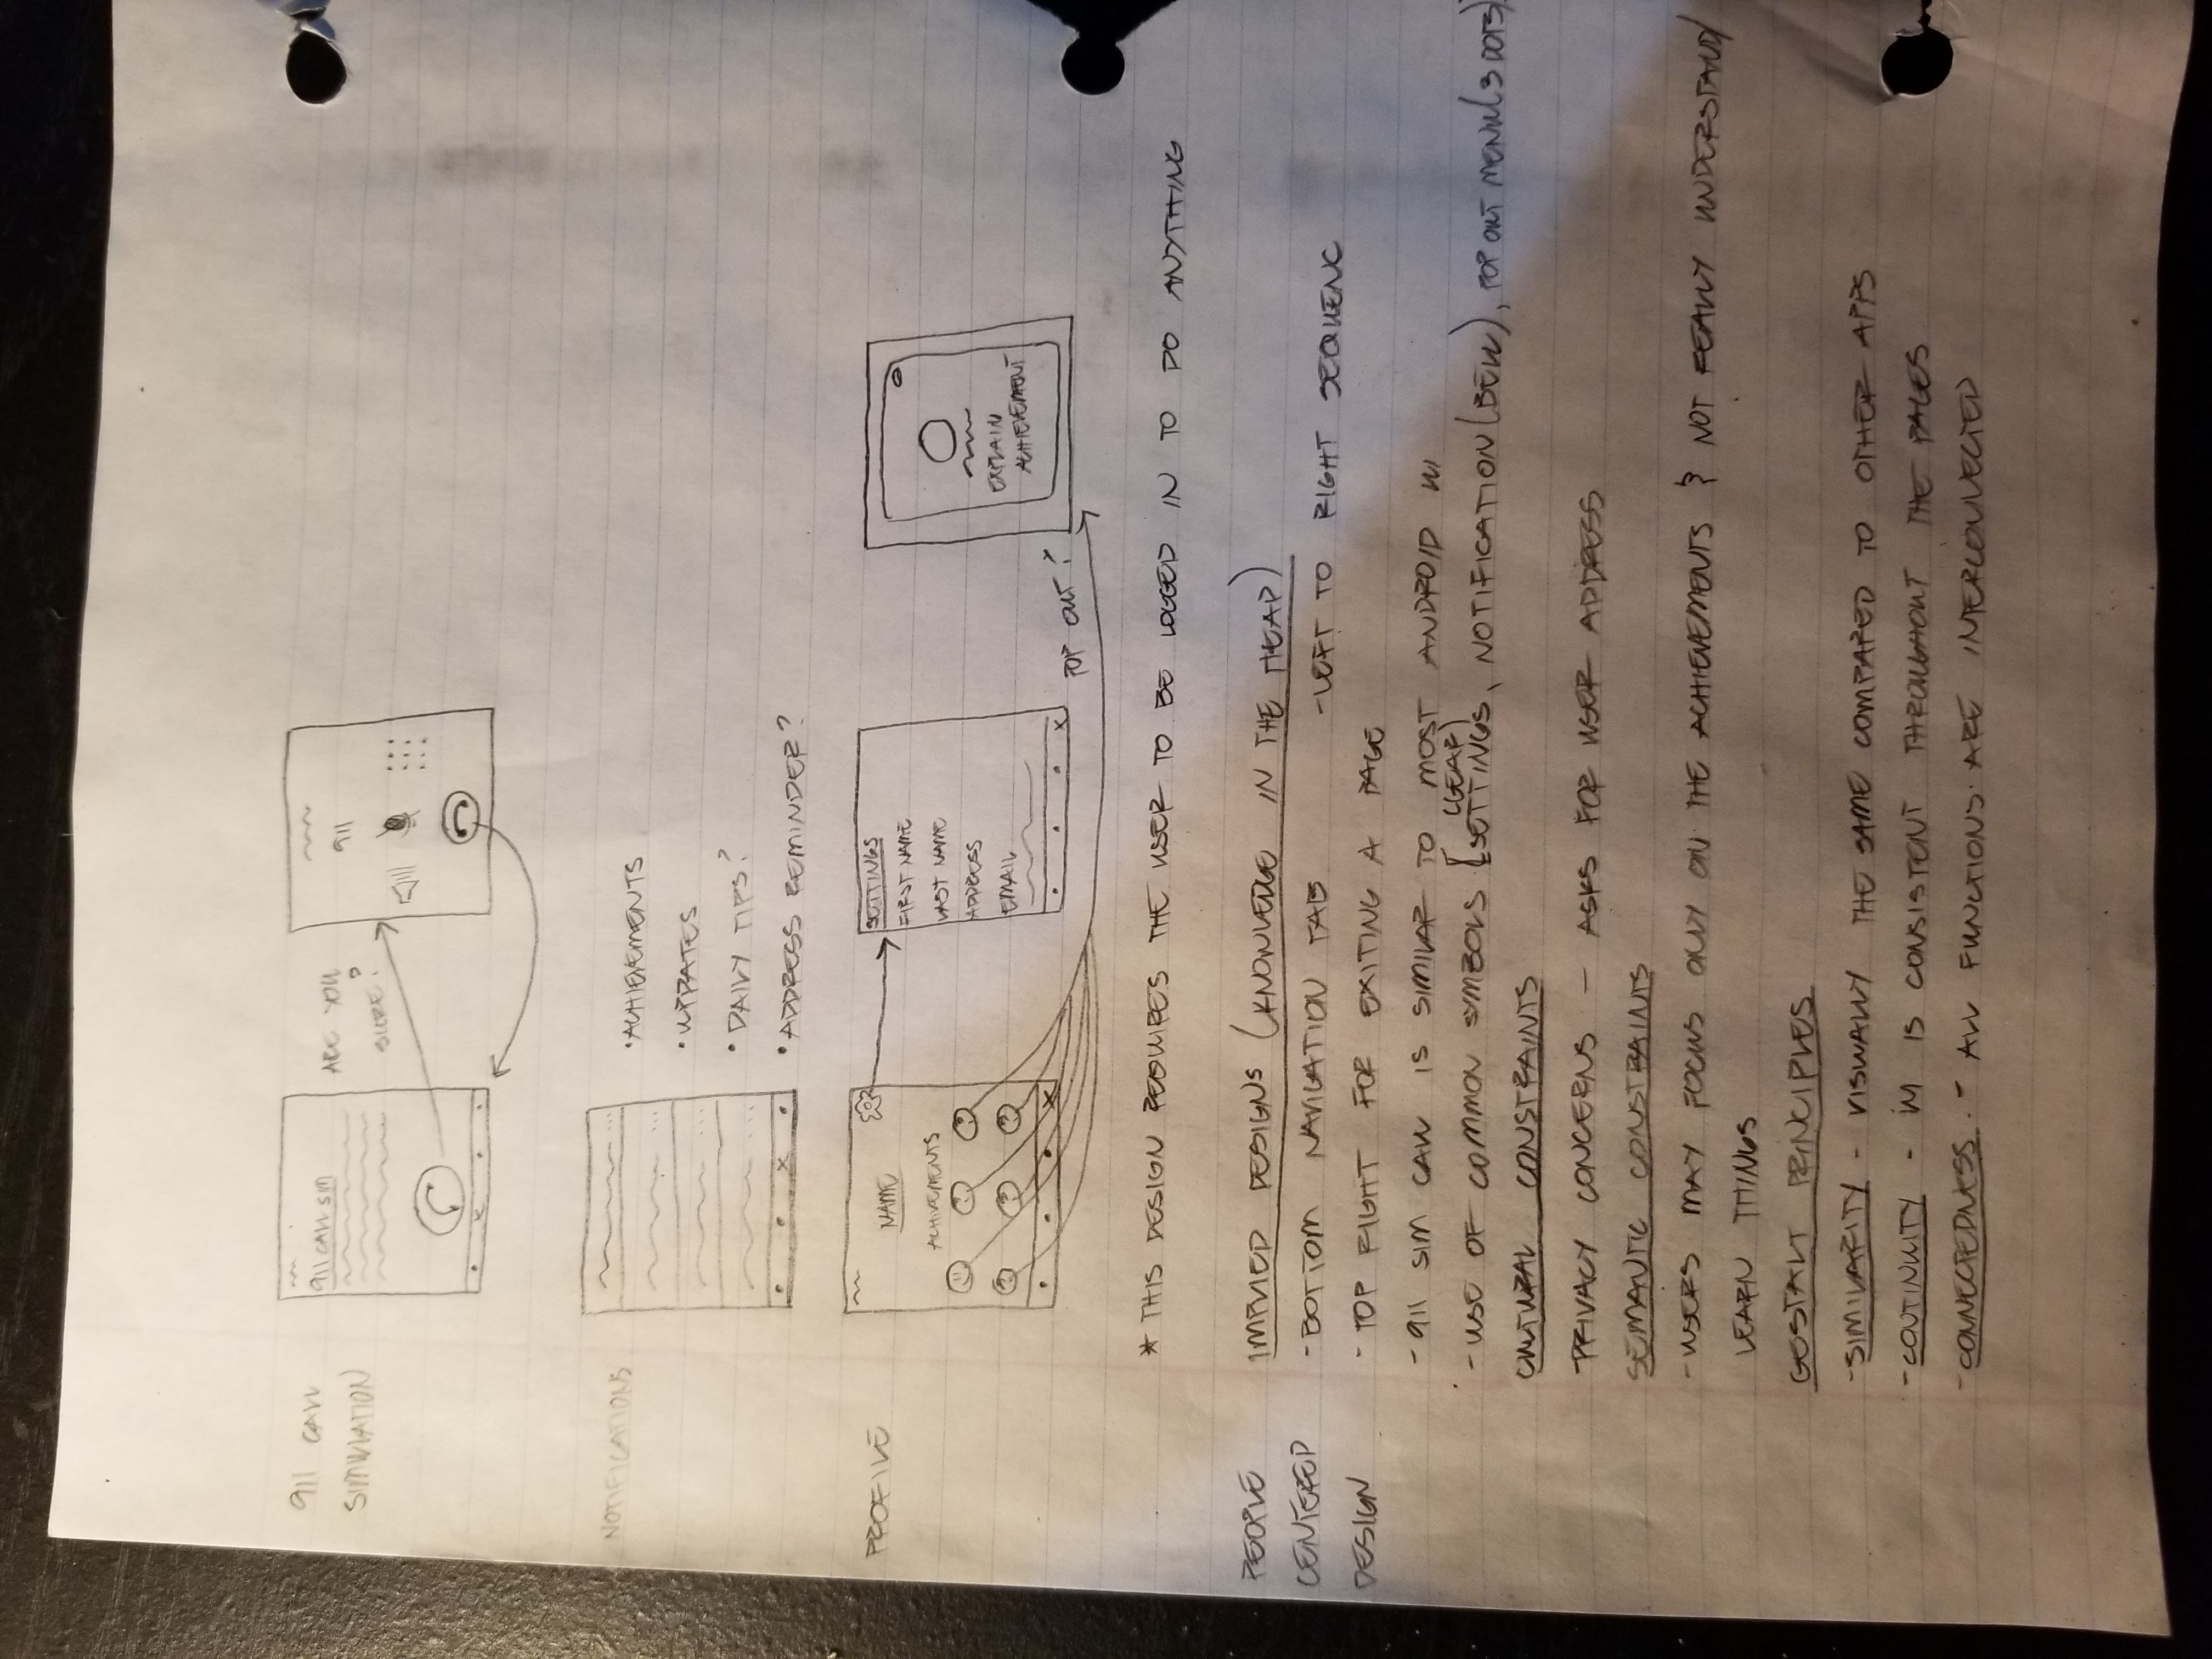 911 CALL
SIMULATION
911 CALL SIM
ARE YOU
SURE?
911
NOTIFICATIONS
• ACHIEVEMENTS
• UPDATES
• DAILY TIPS?
• ADDRESS REMINDER?
PROFILE
NAME
ACHIVEMENTS
SETTINGS
FIRST NAME
LAST NAME
ADDRESS
EMAIL
POP OUT?
EXPLAIN
ACHIEVEMENT
* THIS DESIGN REQUIRES THE USER TO BE LOGGED IN TO DO ANYTHING
PEOPLE
CENTERED
DESIGN
IMPLIED DESIGNS (KNOWLEDGE IN THE HEAD)
- BOTTOM NAVIGATION TAB - LEFT TO RIGHT SEQUENC
- TOP RIGHT FOR EXITING A PAGE
- 911 SIM CALL IS SIMILAR TO MOST ANDROID UI
(GEAR)
- USE OF COMMON SYMBOLS [SETTINGS, NOTIFICATION (BELL), POP OUT MENU (3 DOTS)]
CULTURAL CONSTRAINTS
PRIVACY CONCERNS - ASKS FOR USER ADDRESS
SEMANTIC CONSTRAINTS
- USERS MAY FOCUS ONLY ON THE ACHIEVEMENTS & NOT REALLY UNDERSTAND/
LEARN THINGS
GESTALT PRINCIPLES
- SIMILARITY - VISUALLY THE SAME COMPARED TO OTHER APPS
- CONTINUITY - UI IS CONSISTENT THROUGHOUT THE PAGES
- CONNECTEDNESS - ALL FUNCTIONS ARE INTERCONNECTED